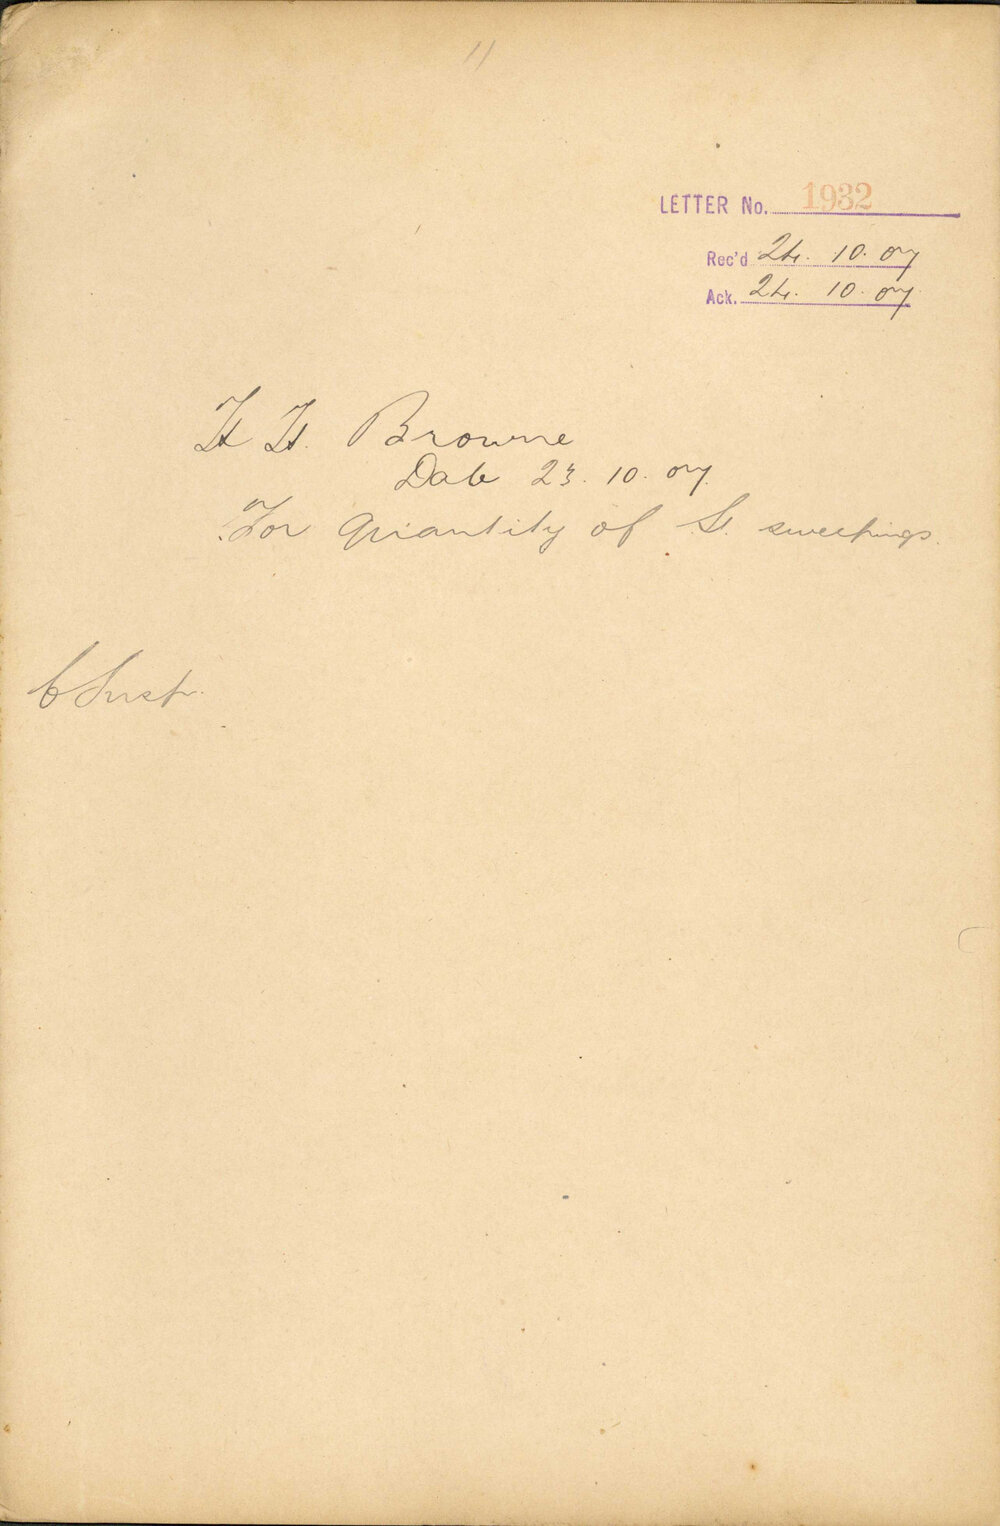 11
LETTER No. 1932
Rec'd 24. 10. 07
Ack. 24. 10. 07
H H. Browne
Date 23. 10. 07.
For quantity of S. sweepings.
C Insp.